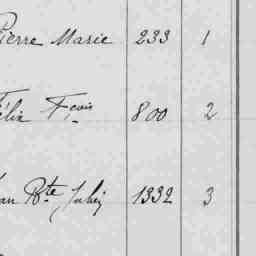 Pierre Marie 233 1
Félix Fçois 800 2
Jean Bte 1332 3